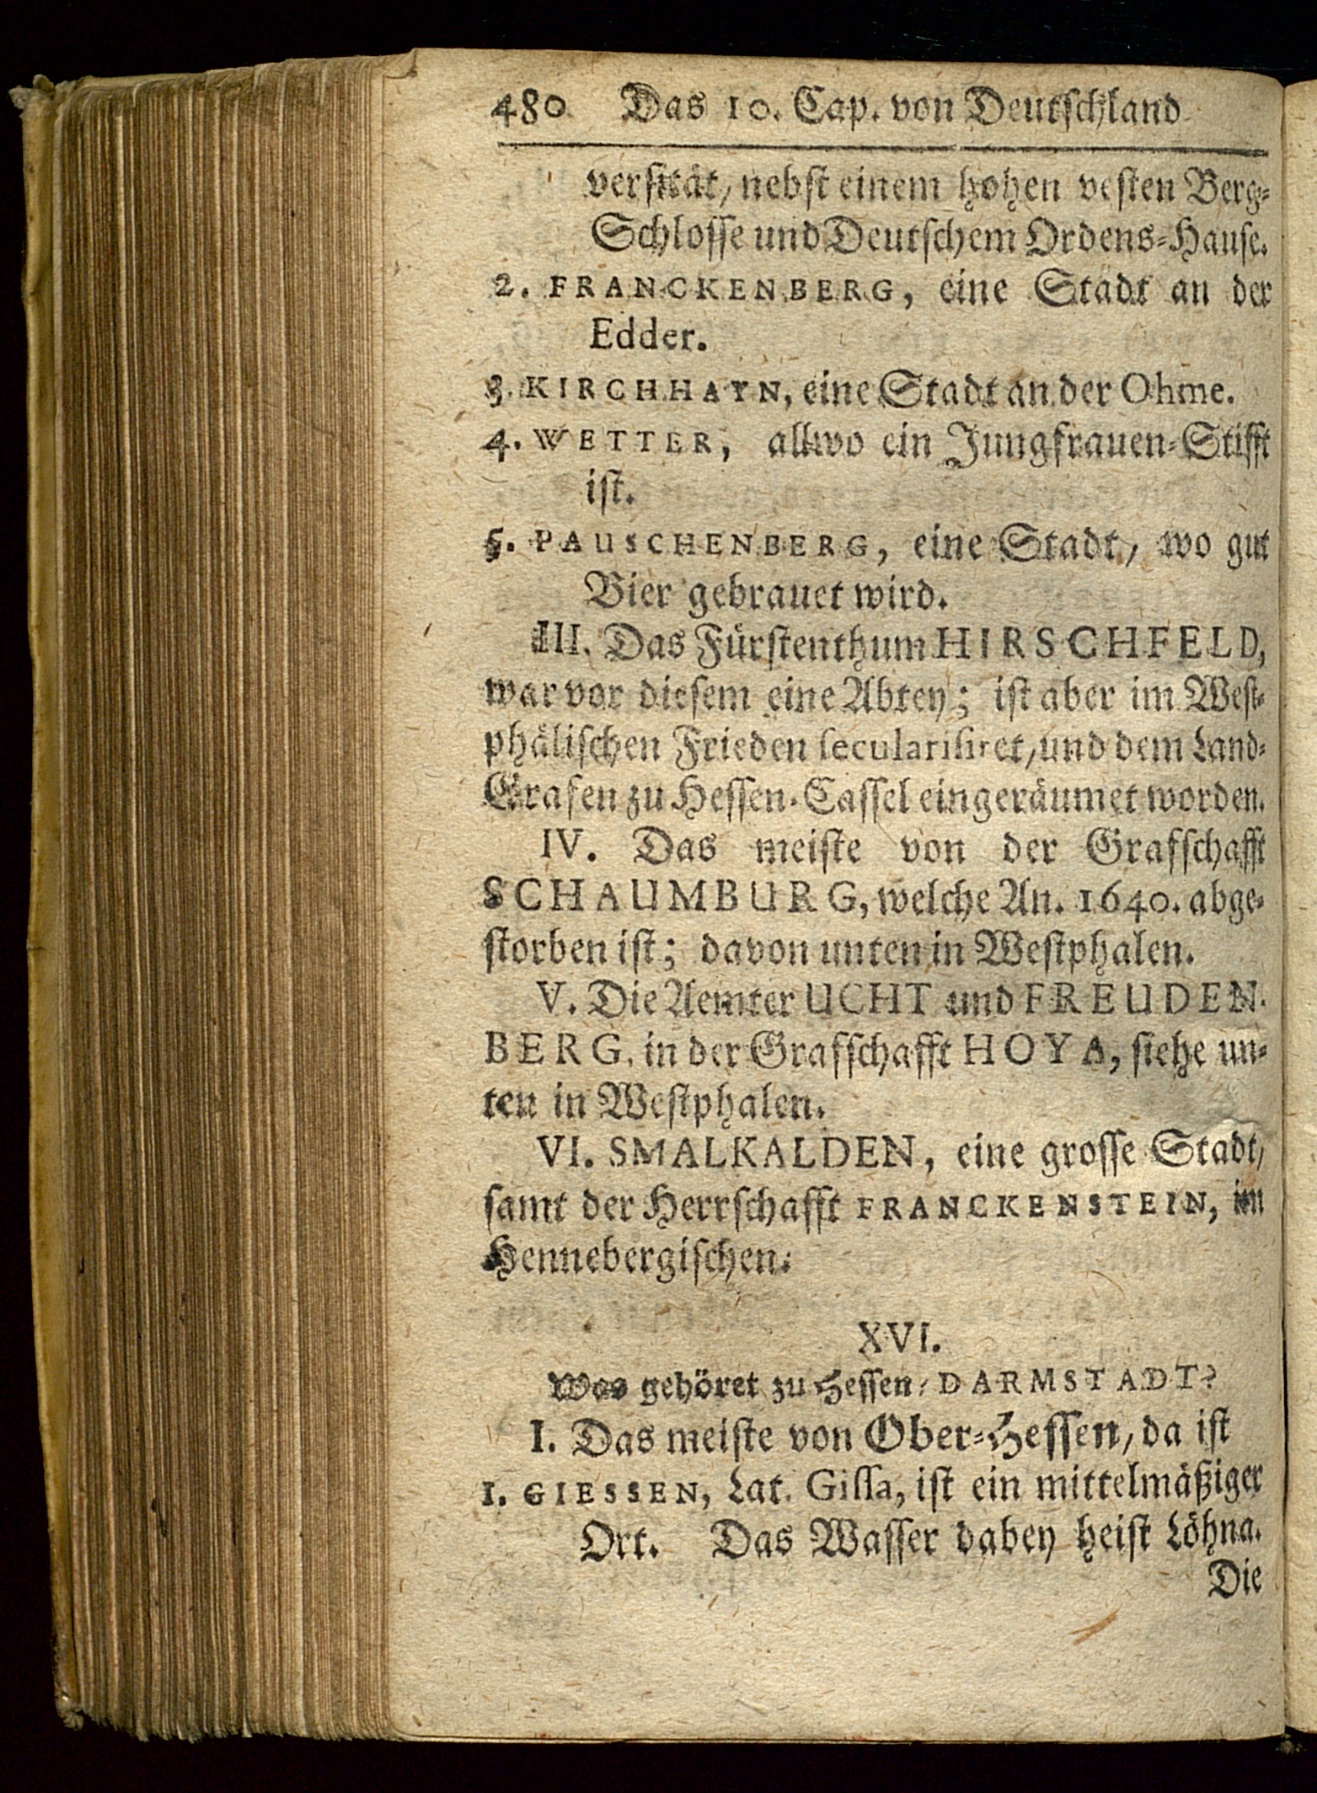 480 Das 10. Cap. von Deutschland
versität, nebst einem hohen vesten Berg-
Schlosse und Deutschem Ordens-Hause.
2. FRANCKENBERG, eine Stadt an der
Edder.
3. KIRCHHAYN, eine Stadt an der Ohme.
4. WETTER, allwo ein Jungfrauen-Stifft
ist.
5. PAUSCHENBERG, eine Stadt, wo gut
Bier gebrauet wird.
III. Das Fürstenthum HIRSCHFELD,
war vor diesem eine Abtey; ist aber im West-
phälischen Frieden secularisiret, und dem Land-
Grafen zu Hessen-Cassel eingeräumet worden.
IV. Das meiste von der Grafschafft
SCHAUMBURG, welche An. 1640. abge-
storben ist; davon unten in Westphalen.
V. Die Aemter UCHT und FREUDEN-
BERG, in der Grafschafft HOYA, siehe un-
ten in Westphalen.
VI. SMALKALDEN, eine grosse Stadt,
samt der Herrschafft FRANCKENSTEIN, im
Hennebergischen.
XVI.
Was gehöret zu Hessen-DARMSTADT?
I. Das meiste von Ober-Hessen, da ist
1. GIESSEN, Lat. Gissa, ist ein mittelmäßiger
Ort. Das Wasser dabey heist Löhna.
Die